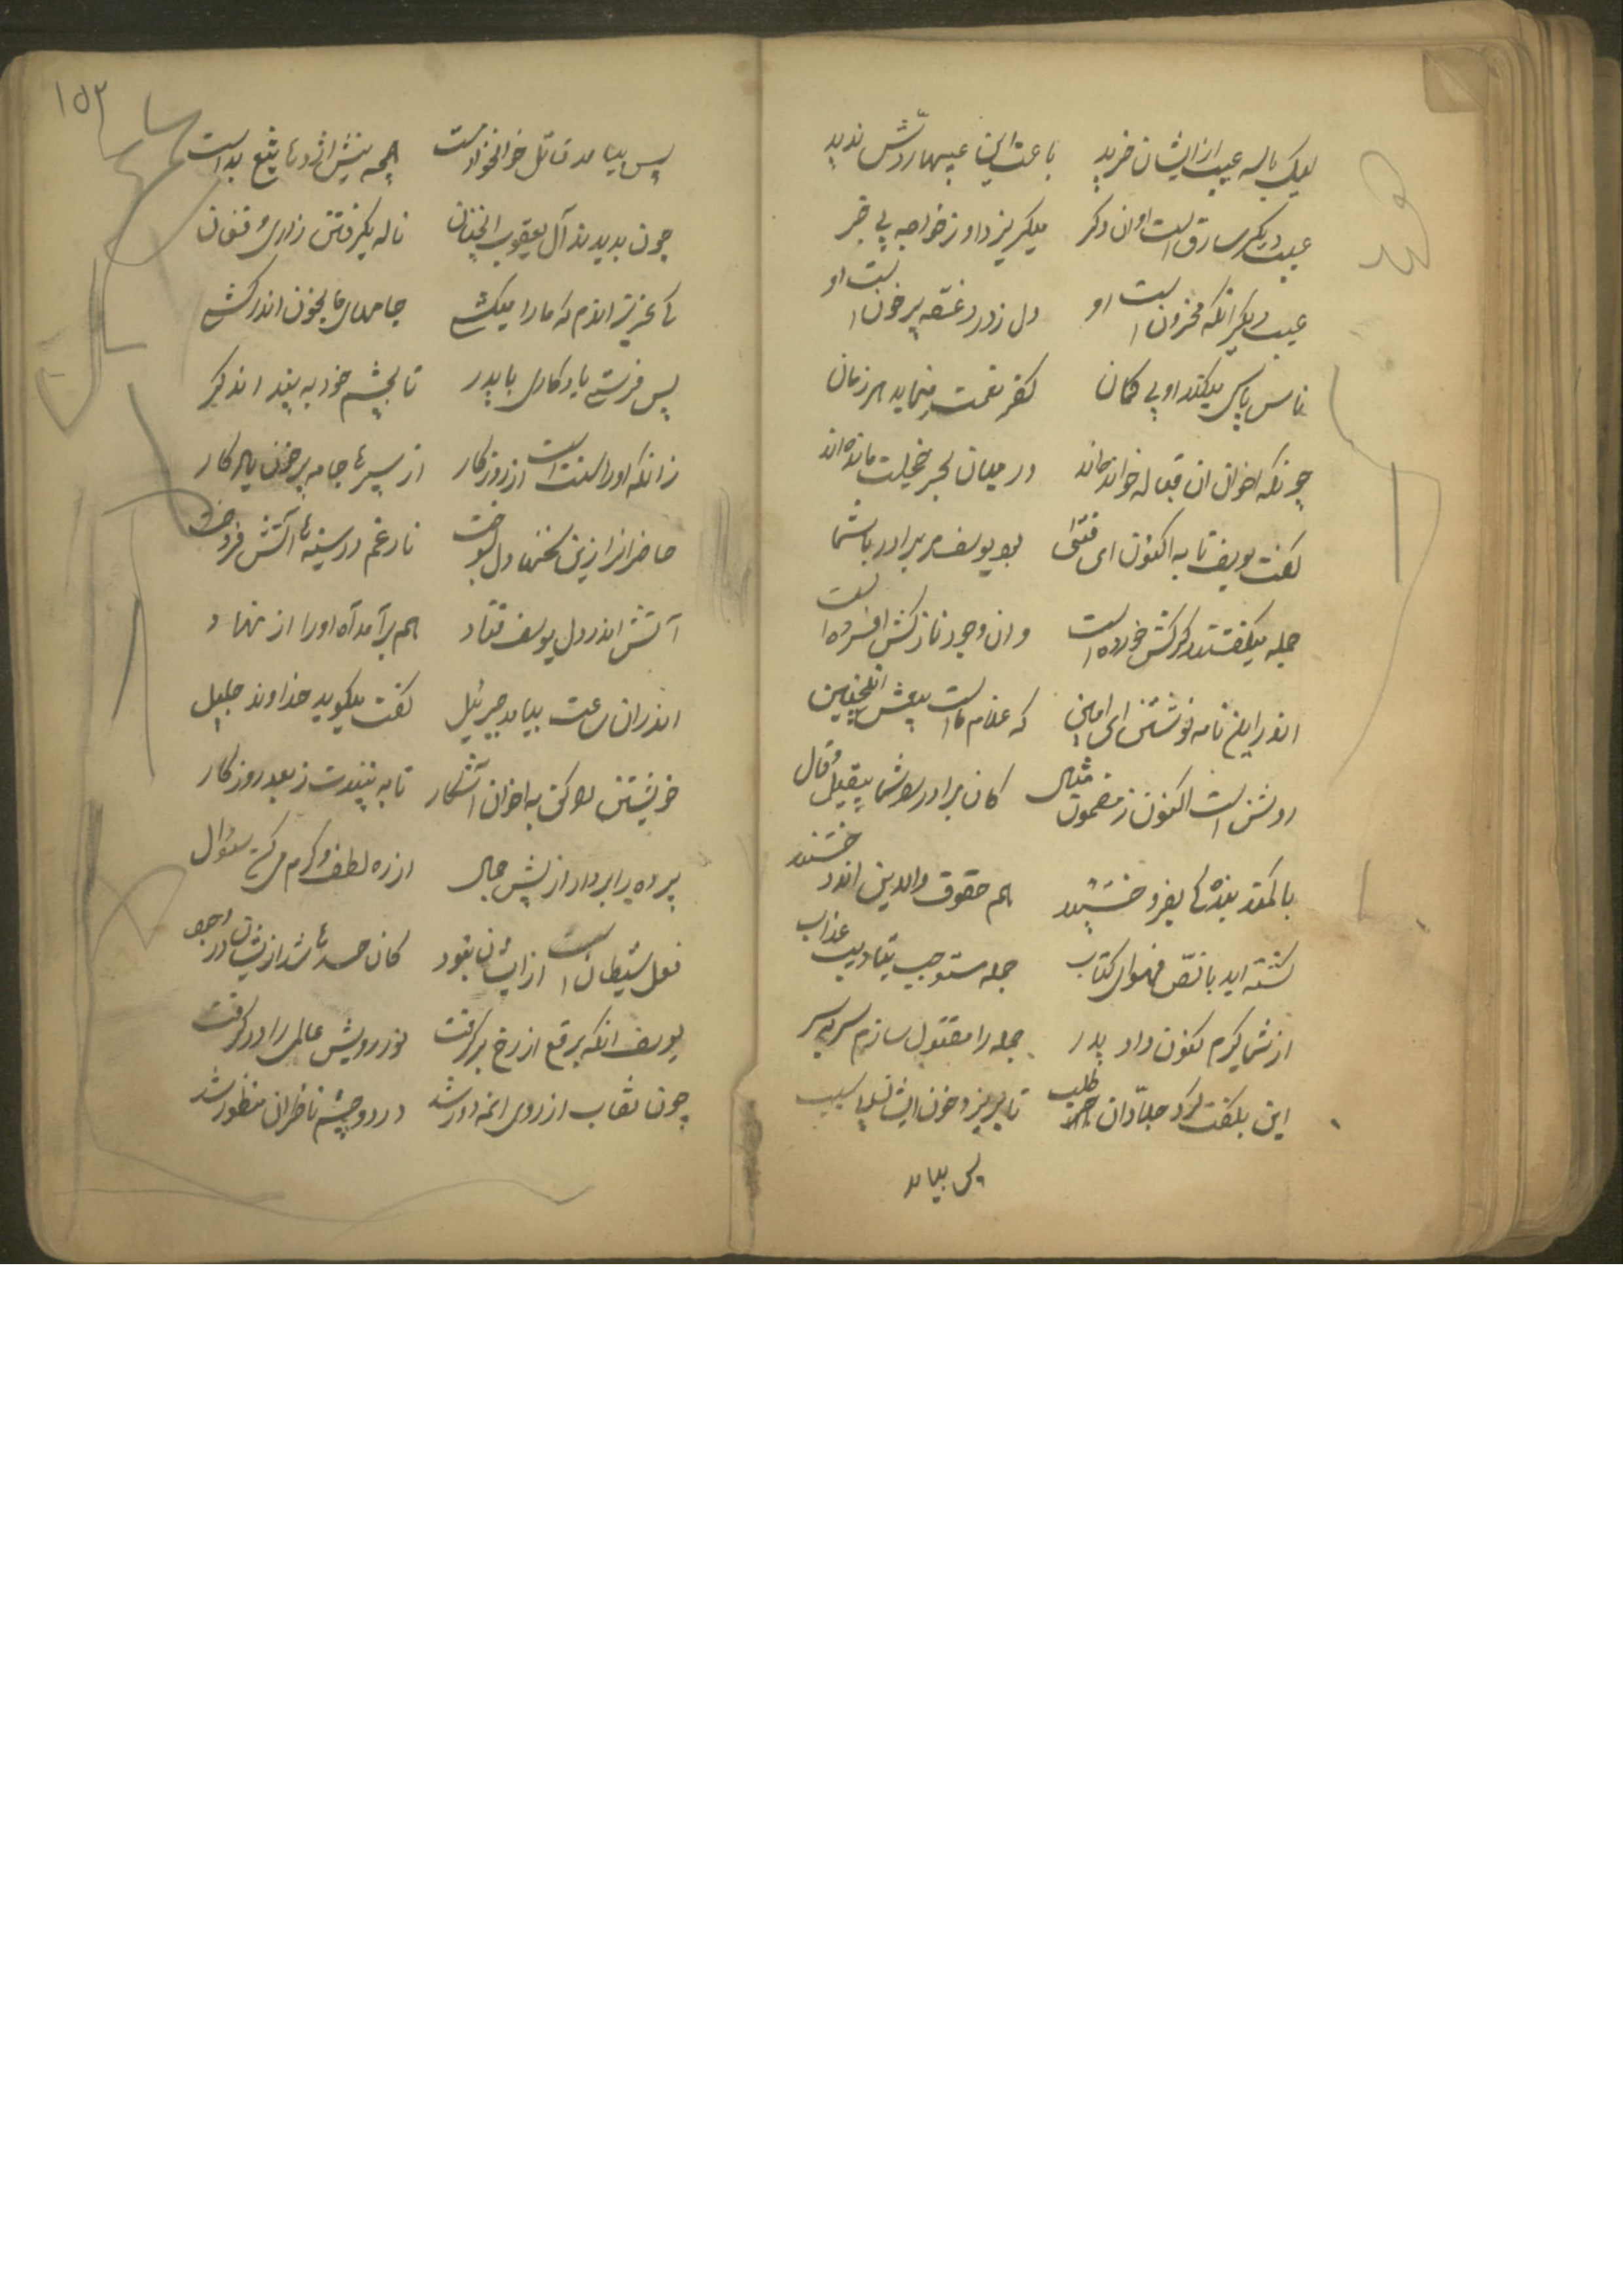 لیک با سه عیب از ایشان خرید باعث این عیبها ردّش ندید
عیب دیگر سارق است او ان دگر میگریزد او ز خواجه بی خبر
عیب دیگر انکه محزون است او دل ز درد غصه پر خون است او
ناسپاسی میکند او بی کمان کفر نعمت مینماید هر زمان
چونکه اخوان ان قباله خوانده‌اند در میان بحر خجلت مانده‌اند
گفت یوسف تا به اکنون ای فتی بود یوسف مر برادر با شما
جمله میکفتند گرکش خورده است وان وجود نازکش افسرده است
اندر این نامه نوشتن ای امین که غلام ما است یوسف اینچنین
روشن است اکنون ز مضمون مثال کان برادر بود شما بیقیل و قال
با کمند بنده کی بفروختند هم حقوق والدین اندوختند
کشته اید با نصّ فحوای کتاب جمله مستوجب بتادیب عذاب
از شما گیرم کنون داد پدر جمله را مقتول سازم سر به سر
این بگفت کرد جلّادان طلب تا بریزد خون ایشان بیا سبب
پس بیامد
۱۵۲
پس بیامد قاتل خوانخوار مست
چون بدیدند آل یعقوب انچنان ناله بگرفتن زاری و فغان
کای عزیز اندم که ما را میکشی جامهای ما بخون اندر کشی
پس فرستی یادکاری با پدر تا بچشم خود به بیند
زانکه او را سنت است از روزکار از پسرها جامه پر خون یادکار
حاضرانرا زین سخنها دل بسوخت نار غم در سینه ها آتش فروخت
آتش اندر دل یوسف فتاد هم برآمد آه او را از نهاد
اندران ساعت بیامد جبرئیل گفت میگوید خداوند جلیل
خویشتن را کن به اخوان آشکار تا به بینندت ز بعد روزکار
پرده را بردار از پیش جمال از ره لطف و کرم می کن سئوال
فعل شیطان است از ایشان نبود کان حسدها شد از یشان در وجود
یوسف انکه برقع از رخ برگرفت نور رویش عالمی را در گرفت
چون نقاب از روی انمه دور شد در دو چشم ناظران منظور شد